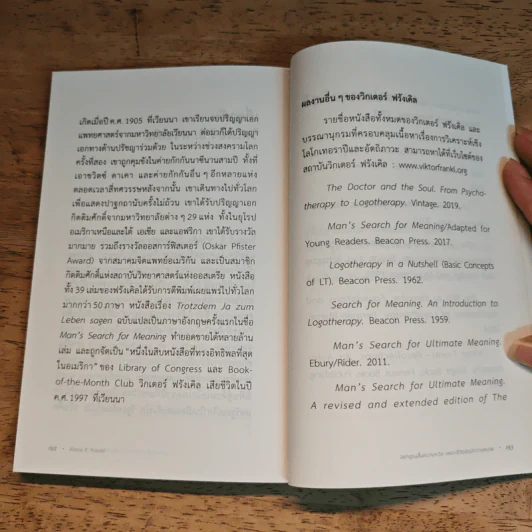 เกิดเมื่อปี ค.ศ. 1905 ที่เวียนนา เขาเรียนจบปริญญาเอก
แพทยศาสตร์จากมหาวิทยาลัยเวียนนา ต่อมาก็ได้ปริญญา
เอกทางด้านปรัชญาร่วมด้วย ในระหว่างช่วงสงครามโลก
ครั้งที่สอง เขาถูกคุมขังในค่ายกักกันนาซีนานสามปี ทั้งที่
เอาชวิตซ์ ดาเคา และค่ายกักกันอื่น ๆ อีกหลายแห่ง
ตลอดเวลาสี่ทศวรรษหลังจากนั้น เขาเดินทางไปทั่วโลก
เพื่อแสดงปาฐกถานับครั้งไม่ถ้วน เขาได้รับปริญญาเอก
กิตติมศักดิ์จากมหาวิทยาลัยต่าง ๆ 29 แห่ง ทั้งในยุโรป
อเมริกาเหนือและใต้ เอเชีย และแอฟริกา เขาได้รับรางวัล
มากมาย รวมถึงรางวัลออสการ์ฟิสเตอร์ (Oskar Pfister
Award) จากสมาคมจิตแพทย์อเมริกัน และเป็นสมาชิก
กิตติมศักดิ์แห่งสถาบันวิทยาศาสตร์แห่งออสเตรีย หนังสือ
ทั้ง 39 เล่มของฟรังเคิลได้รับการตีพิมพ์เผยแพร่ไปทั่วโลก
มากกว่า 50 ภาษา หนังสือเรื่อง Trotzdem Ja zum
Leben sagen ฉบับแปลเป็นภาษาอังกฤษครั้งแรกในชื่อ
Man's Search for Meaning ทำยอดขายได้หลายล้าน
เล่ม และถูกจัดเป็น "หนึ่งในสิบหนังสือที่ทรงอิทธิพลที่สุด
ในอเมริกา" ของ Library of Congress และ Book-
of-the-Month Club วิกเตอร์ ฟรังเคิล เสียชีวิตในปี
ค.ศ. 1997 ที่เวียนนา
ผลงานอื่น ๆ ของวิกเตอร์ ฟรังเคิล
รายชื่อหนังสือทั้งหมดของวิกเตอร์ ฟรังเคิล และ
บรรณานุกรมที่ครอบคลุมเนื้อหาเรื่องการวิเคราะห์เชิง
โลโกเทอราปีและอัตถิภาวะ สามารถหาได้ที่เว็บไซต์ของ
สถาบันวิกเตอร์ ฟรังเคิล : www.viktorfrankl.org
The Doctor and the Soul. From Psycho-
therapy to Logotherapy. Vintage. 2019.
Man's Search for Meaning/Adapted for
Young Readers. Beacon Press. 2017.
Logotherapy in a Nutshell (Basic Concepts
of LT). Beacon Press. 1962.
Search for Meaning. An Introduction to
Logotherapy. Beacon Press. 1959.
Man's Search for Ultimate Meaning.
Ebury/Rider. 2011.
Man's Search for Ultimate Meaning.
A revised and extended edition of The